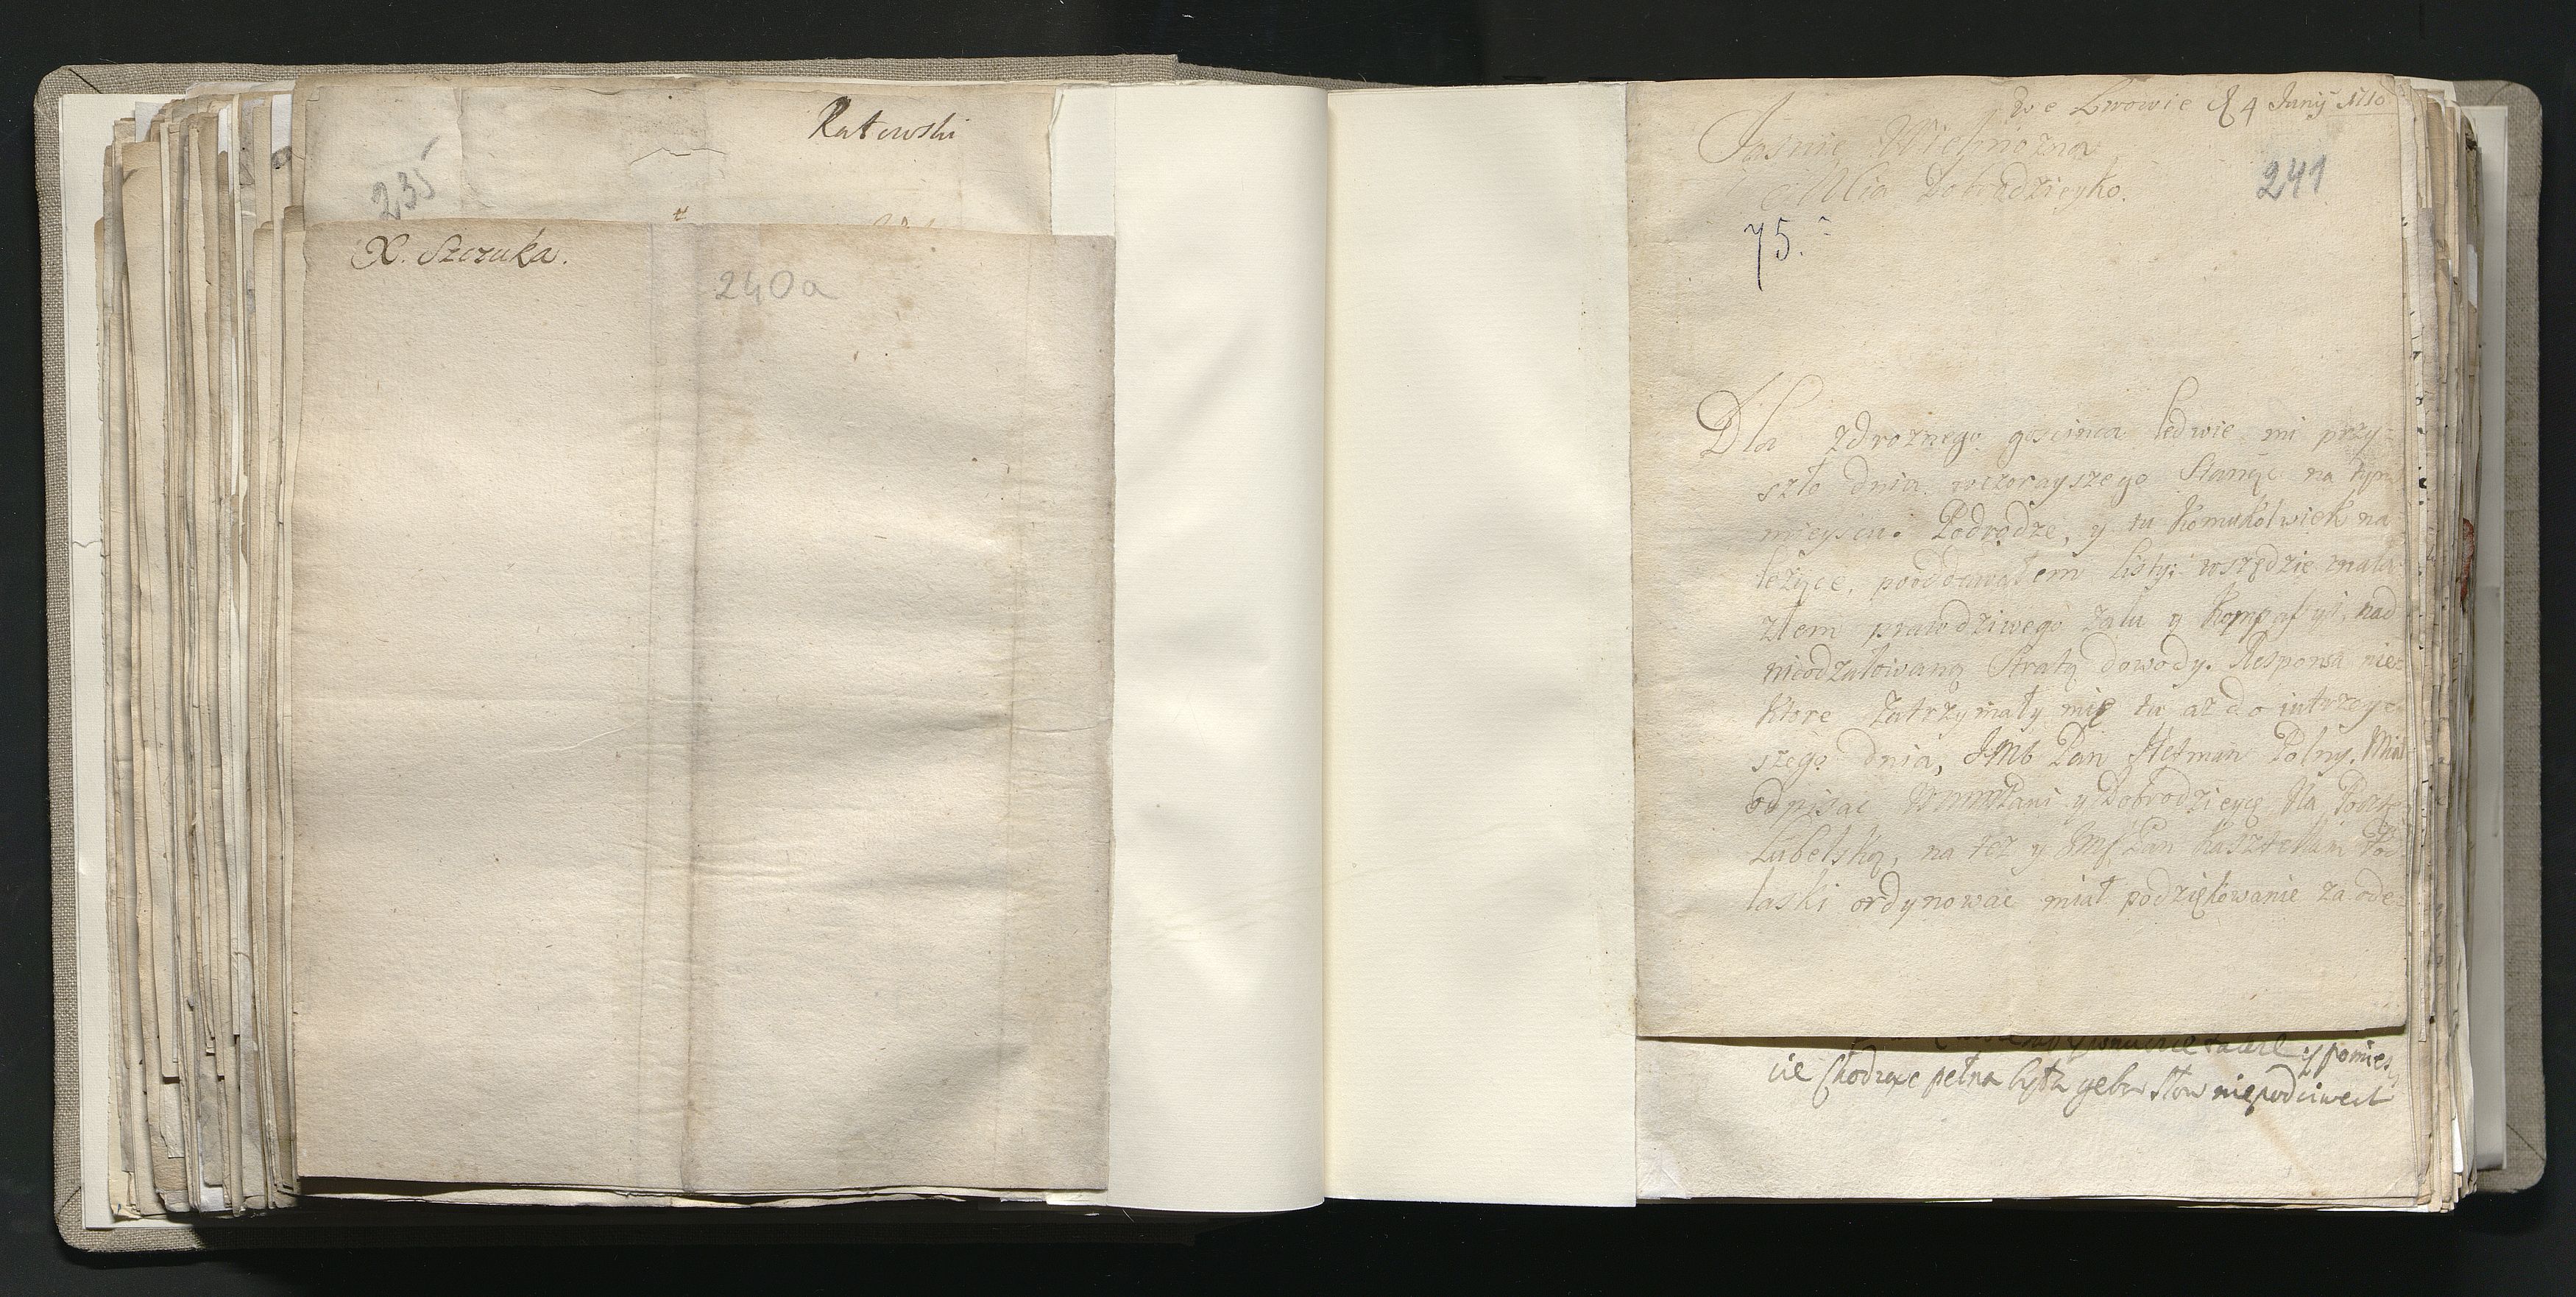 Ratowski
235
X. Szczuka.
240a
We Lwowie d 4 Junij 1710
Jasnie Wielmozna
Mcia Dobrodzieyko.
241
75.
Dla zdroznego goscinca ledwie mi przy=
szło dnia wczorayszego Stanąc na tym
mieyscu. Podrodze, y tu komukolwiek na
leżące, poodd​awałem listy: wszędzie znala
złem prawdziwego zalu y kompassyi, nad
nieodżałowaną Stratą dowody. Responsa nie=
ktore zatrzymały mię tu az do iutrzey
szego dnia, JMć Pan Hetman Polny. Miał
odpisac WMMPani y Dobrodzieyce Na Pocztę
Lubelską, na też y JMć Pan Kasztellan Pod
laski ordynowac miał podziękowanie za ode=
y pomies
cie chodząc pełna była gęba słow niepodciwech